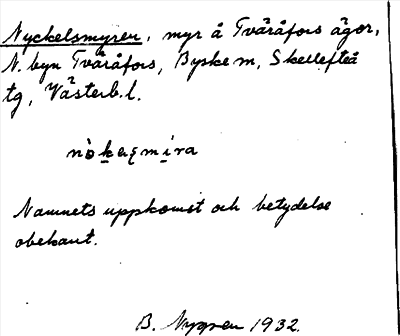 Nyckelsmyren, myr å Tväråfors ägor,
N. byn Tväråfors, Byske m, Skellefteå
tg, Västerb. l.
Namnets uppkomst och betydelse
obekant.
B. Nygren 1932.